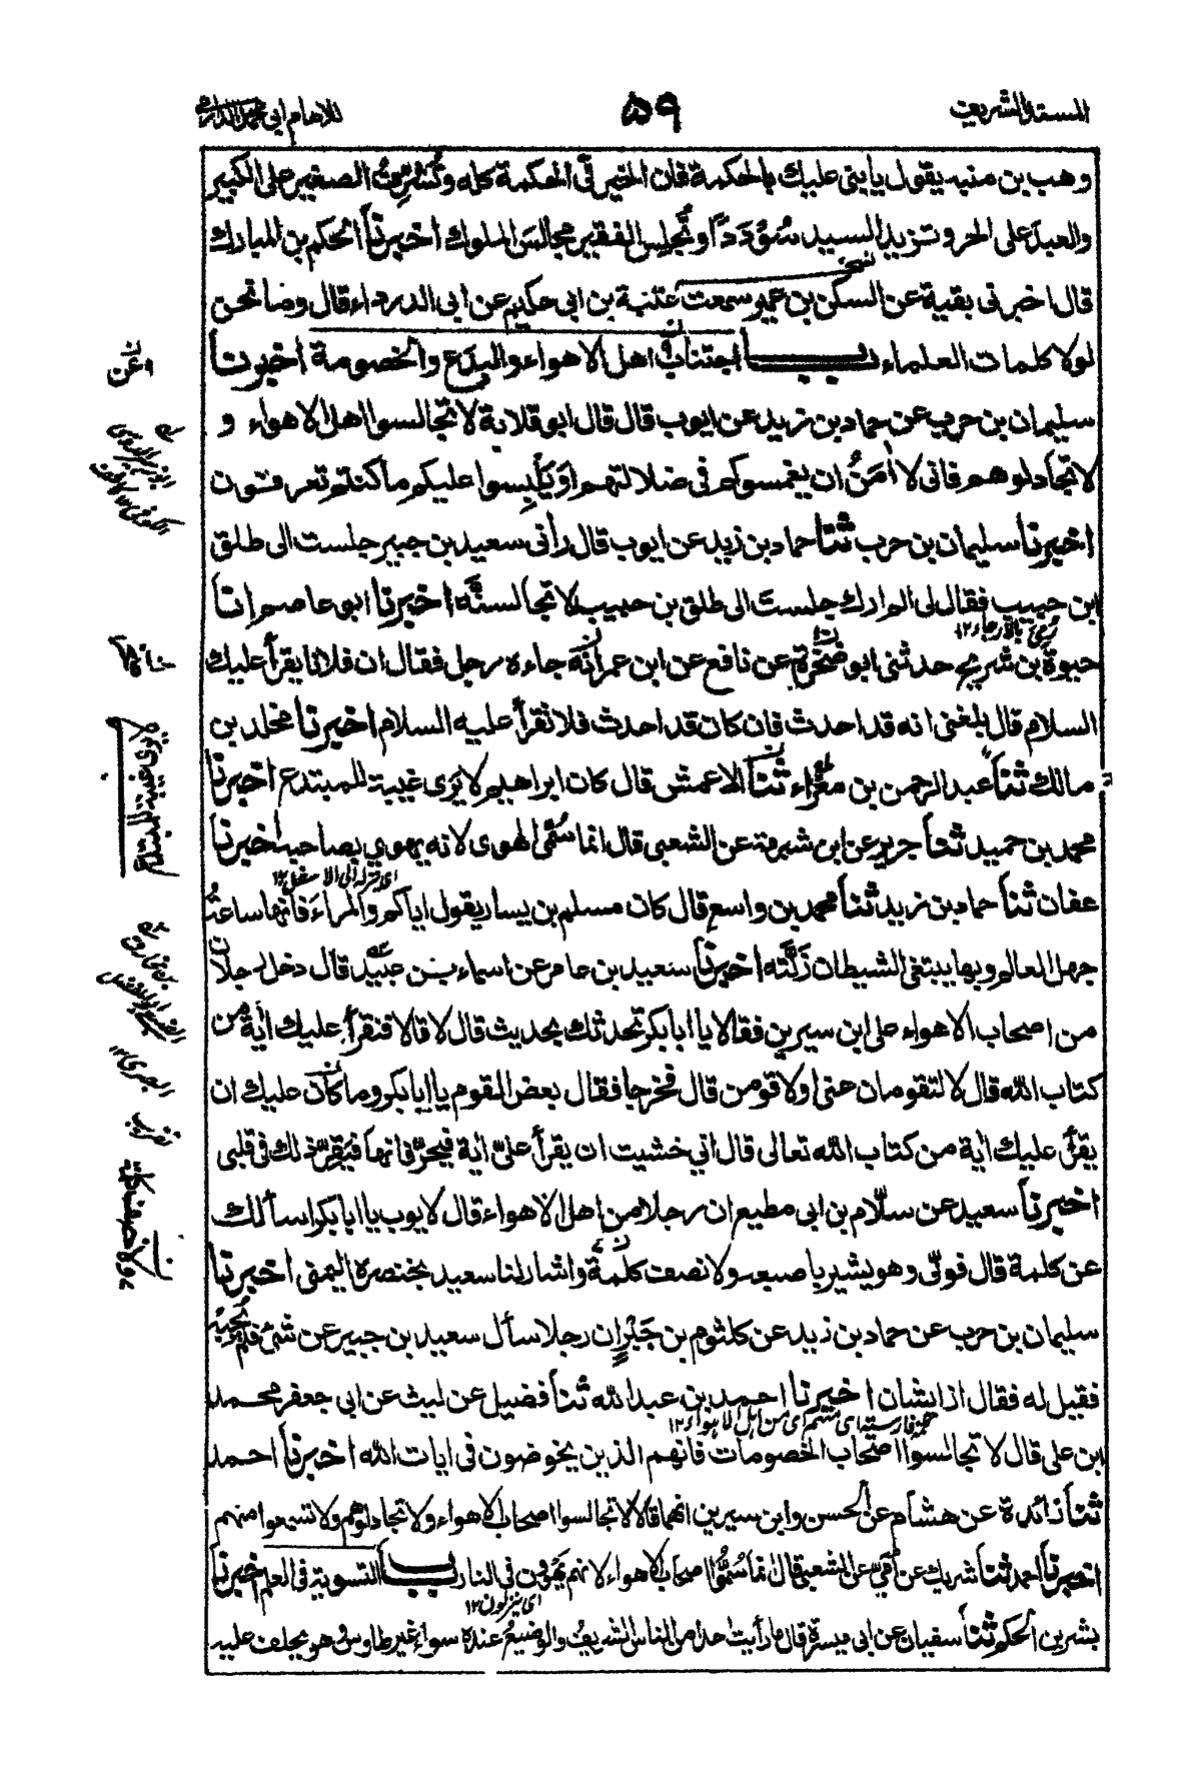 المسند الشريف
٥٩
للامام ابي محمد الدارمي
وهب بن منبه يقول يا بنى عليك بالحكمة فان الخير فى الحكمة كله وتُشرّف الصغير على الكبير
والعبد على الحر وتزيد السيد سُؤدَدًا وتُجلس الفقير مجالس الملوك اخبرنا الحكم بن المبارك
قال اخبرنى بقية عن السكن بن عمير سمعت عتبة بن ابى حكيم عن ابى الدرداء قال وما نحن
لولا كلمات العلماء باب اجتناب اهل الاهواء والبدع والخصومة اخبرنا
سليمان بن حرب عن حماد بن زيد عن ايوب قال قال ابو قلابة لا تجالسوا اهل الاهواء و
لا تجادلوهم فانى لا اٰمَنُ ان يغمسوكم فى ضلالتهم او يَلبِسوا عليكم ما كنتم تعرفون
اخبرنا سليمان بن حرب ثنا حماد بن زيد عن ايوب قال رآنى سعيد بن جبير جلست الى طلق
بن حبيب فقال لى الم ارك جلستَ الى طلق بن حبيب لا تجالسنّه اخبرنا ابو عاصم انا
حيوة بن شريح حدثنى ابو صخرة عن نافع عن ابن عمر انّه جاءه رجل فقال ان فلانا يقرأ عليك
السلام قال بلغنى انه قد احدث فان كان قد احدث فلا تقرأ عليه السلام اخبرنا مخلد بن
مالك ثنا عبد الرحمن بن مغراء ثنا الاعمش قال كان ابراهيم لا يَرى غيبة للمبتدع اخبرنا
لا يرى غيبة للمبتدع
محمد بن حميد ثنا جرير عن ابن شبرمة عن الشعبى قال انما سُمّى الهوى لانه يهوى بصاحبه اخبرنا
عفان ثنا حماد بن زيد ثنا محمد بن واسع قال كان مسلم بن يسار يقول اياكم والمراءَ فانها ساعةُ
جهل العالم وبها يبتغى الشيطان زَلّتَه اخبرنا سعيد بن عامر عن اسماء بن عبيد قال دخل رجلان
من اصحاب الاهواء على ابن سيرين فقالا يا ابا بكر نحدثك بحديث قال لا قالا فنقرأ عليك اٰية من
كتاب الله قال لا لتقومان عنى او لاقومن قال فخرجا فقال بعض القوم يا ابا بكر وما كان عليك ان
يقرآ عليك اٰية من كتاب الله تعالى قال انى خشيت ان يقرآ علىّ اٰية فيحرّفانها فيَقِرّ ذلك فى قلبى
اخبرنا سعيد عن سلّام بن ابى مطيع ان رجلا من اهل الاهواء قال لايوب يا ابا بكر اسألك
عن كلمة قال فولّى وهو يشير باصبعه ولا نصف كلمة واشار لنا سعيد بخنصره اليمنى اخبرنا
سليمان بن حرب عن حماد بن زيد عن كلثوم بن جَبْر ان رجلا سأل سعيد بن جبير عن شئ فلم يُجبه
فقيل له فقال ازايشان اخبرنا احمد بن عبد الله ثنا فضيل عن ليث عن ابى جعفر محمد
بن على قال لا تجالسوا اصحاب الخصومات فانهم الذين يخوضون فى اٰيات الله اخبرنا احمد
ثنا زائدة عن هشام عن الحسن وابن سيرين انهما قالا لا تجالسوا اصحاب الاهواء ولا تجادلوهم ولا تسمعوا منهم
اخبرنا احمد ثنا شريك عن اُمَىّ عن الشعبى قال انما سُمّوا اصحاب الاهواء لانهم يَهوون فى النار باب التسوية فى العلم اخبرنا
بشر بن الحكم ثنا سفيان عن ابن ميسرة قال ما رأيت احدا من الناس الشريفُ والوضيعُ عنده سواء غير طاوس وهو يحلف عليه